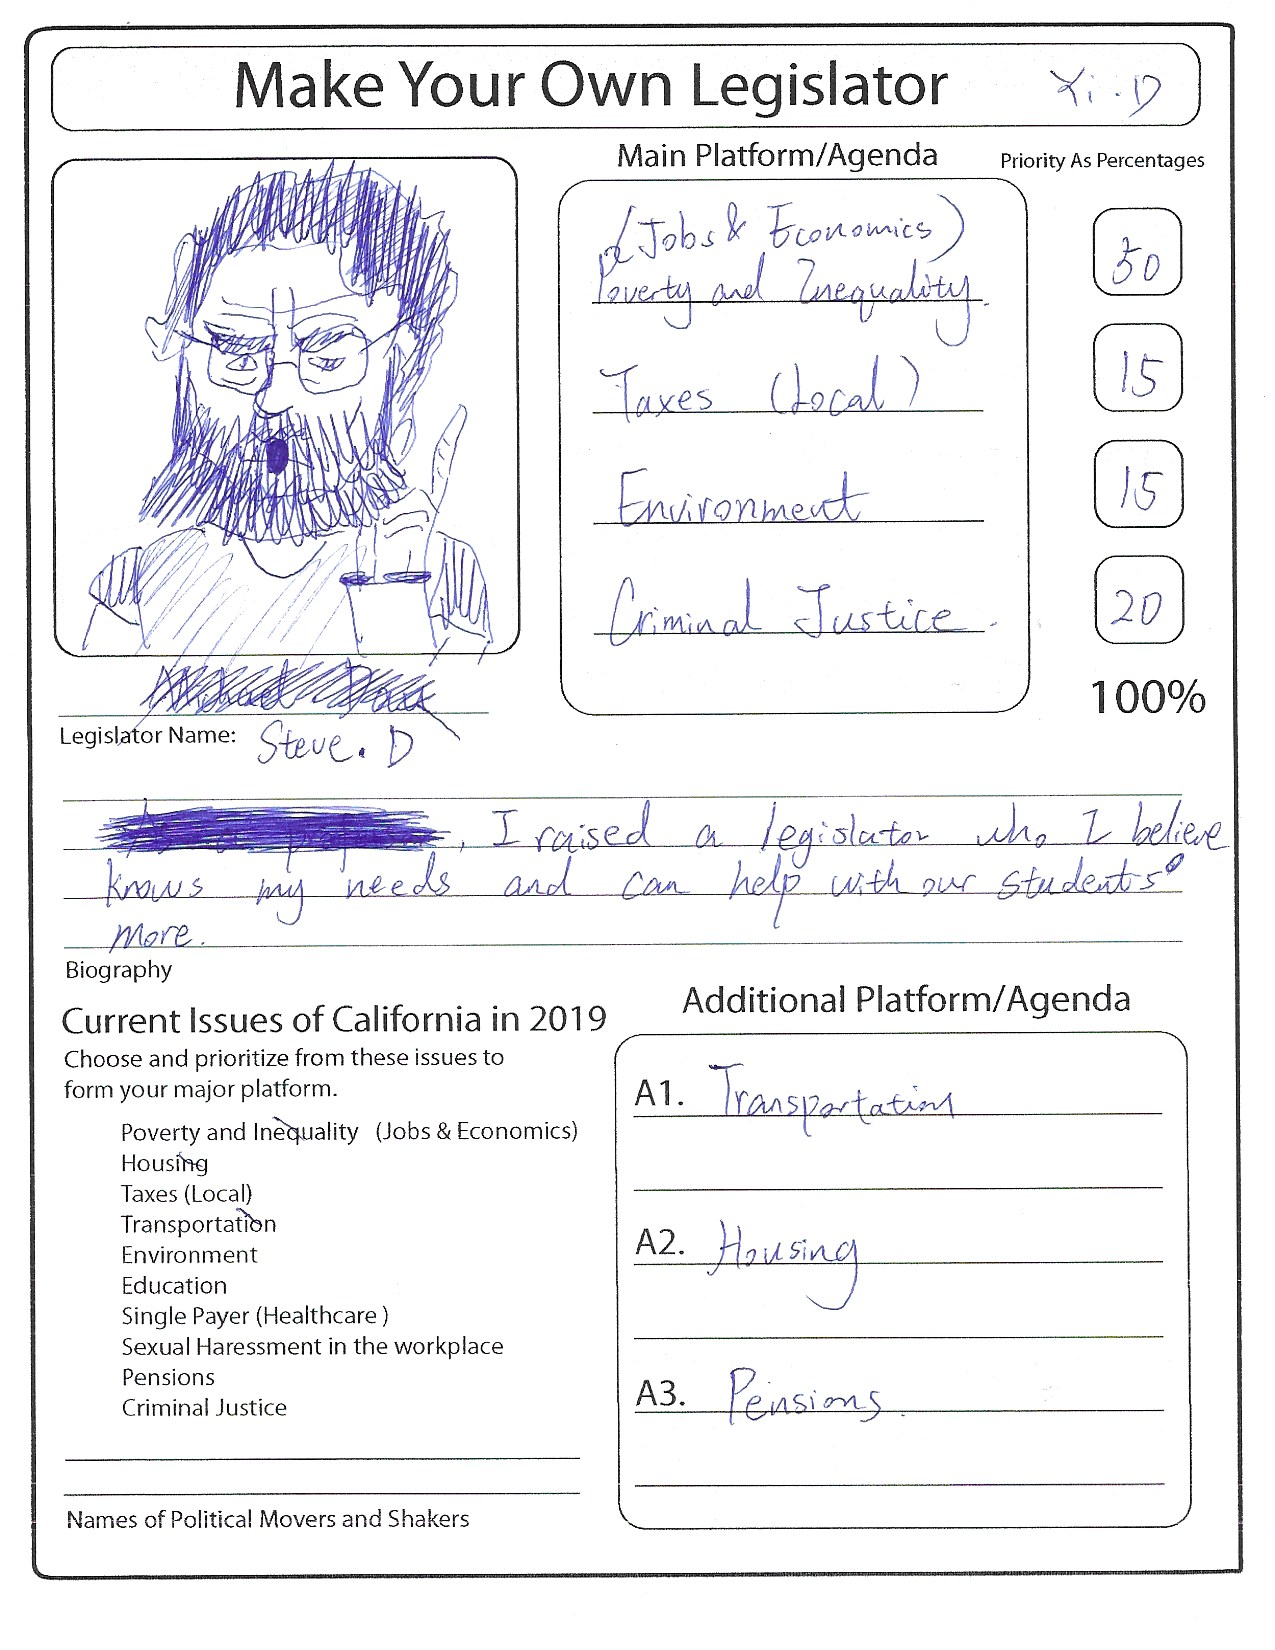 Make Your Own Legislator
Xi. D
Main Platform/Agenda
Priority As Percentages
(Jobs & Economics)
Poverty and Inequality.
50
Taxes (Local)
15
Environment
15
Criminal Justice.
20
100%
Legislator Name: Steve. D
, I raised a legislator who I believe
knows my needs and can help with our students'
more.
Biography
Current Issues of California in 2019
Choose and prioritize from these issues to
form your major platform.
Poverty and Inequality (Jobs & Economics)
Housing
Taxes (Local)
Transportation
Environment
Education
Single Payer (Healthcare )
Sexual Haressment in the workplace
Pensions
Criminal Justice
Names of Political Movers and Shakers
Additional Platform/Agenda
A1. Transportation
A2. Housing
A3. Pensions.